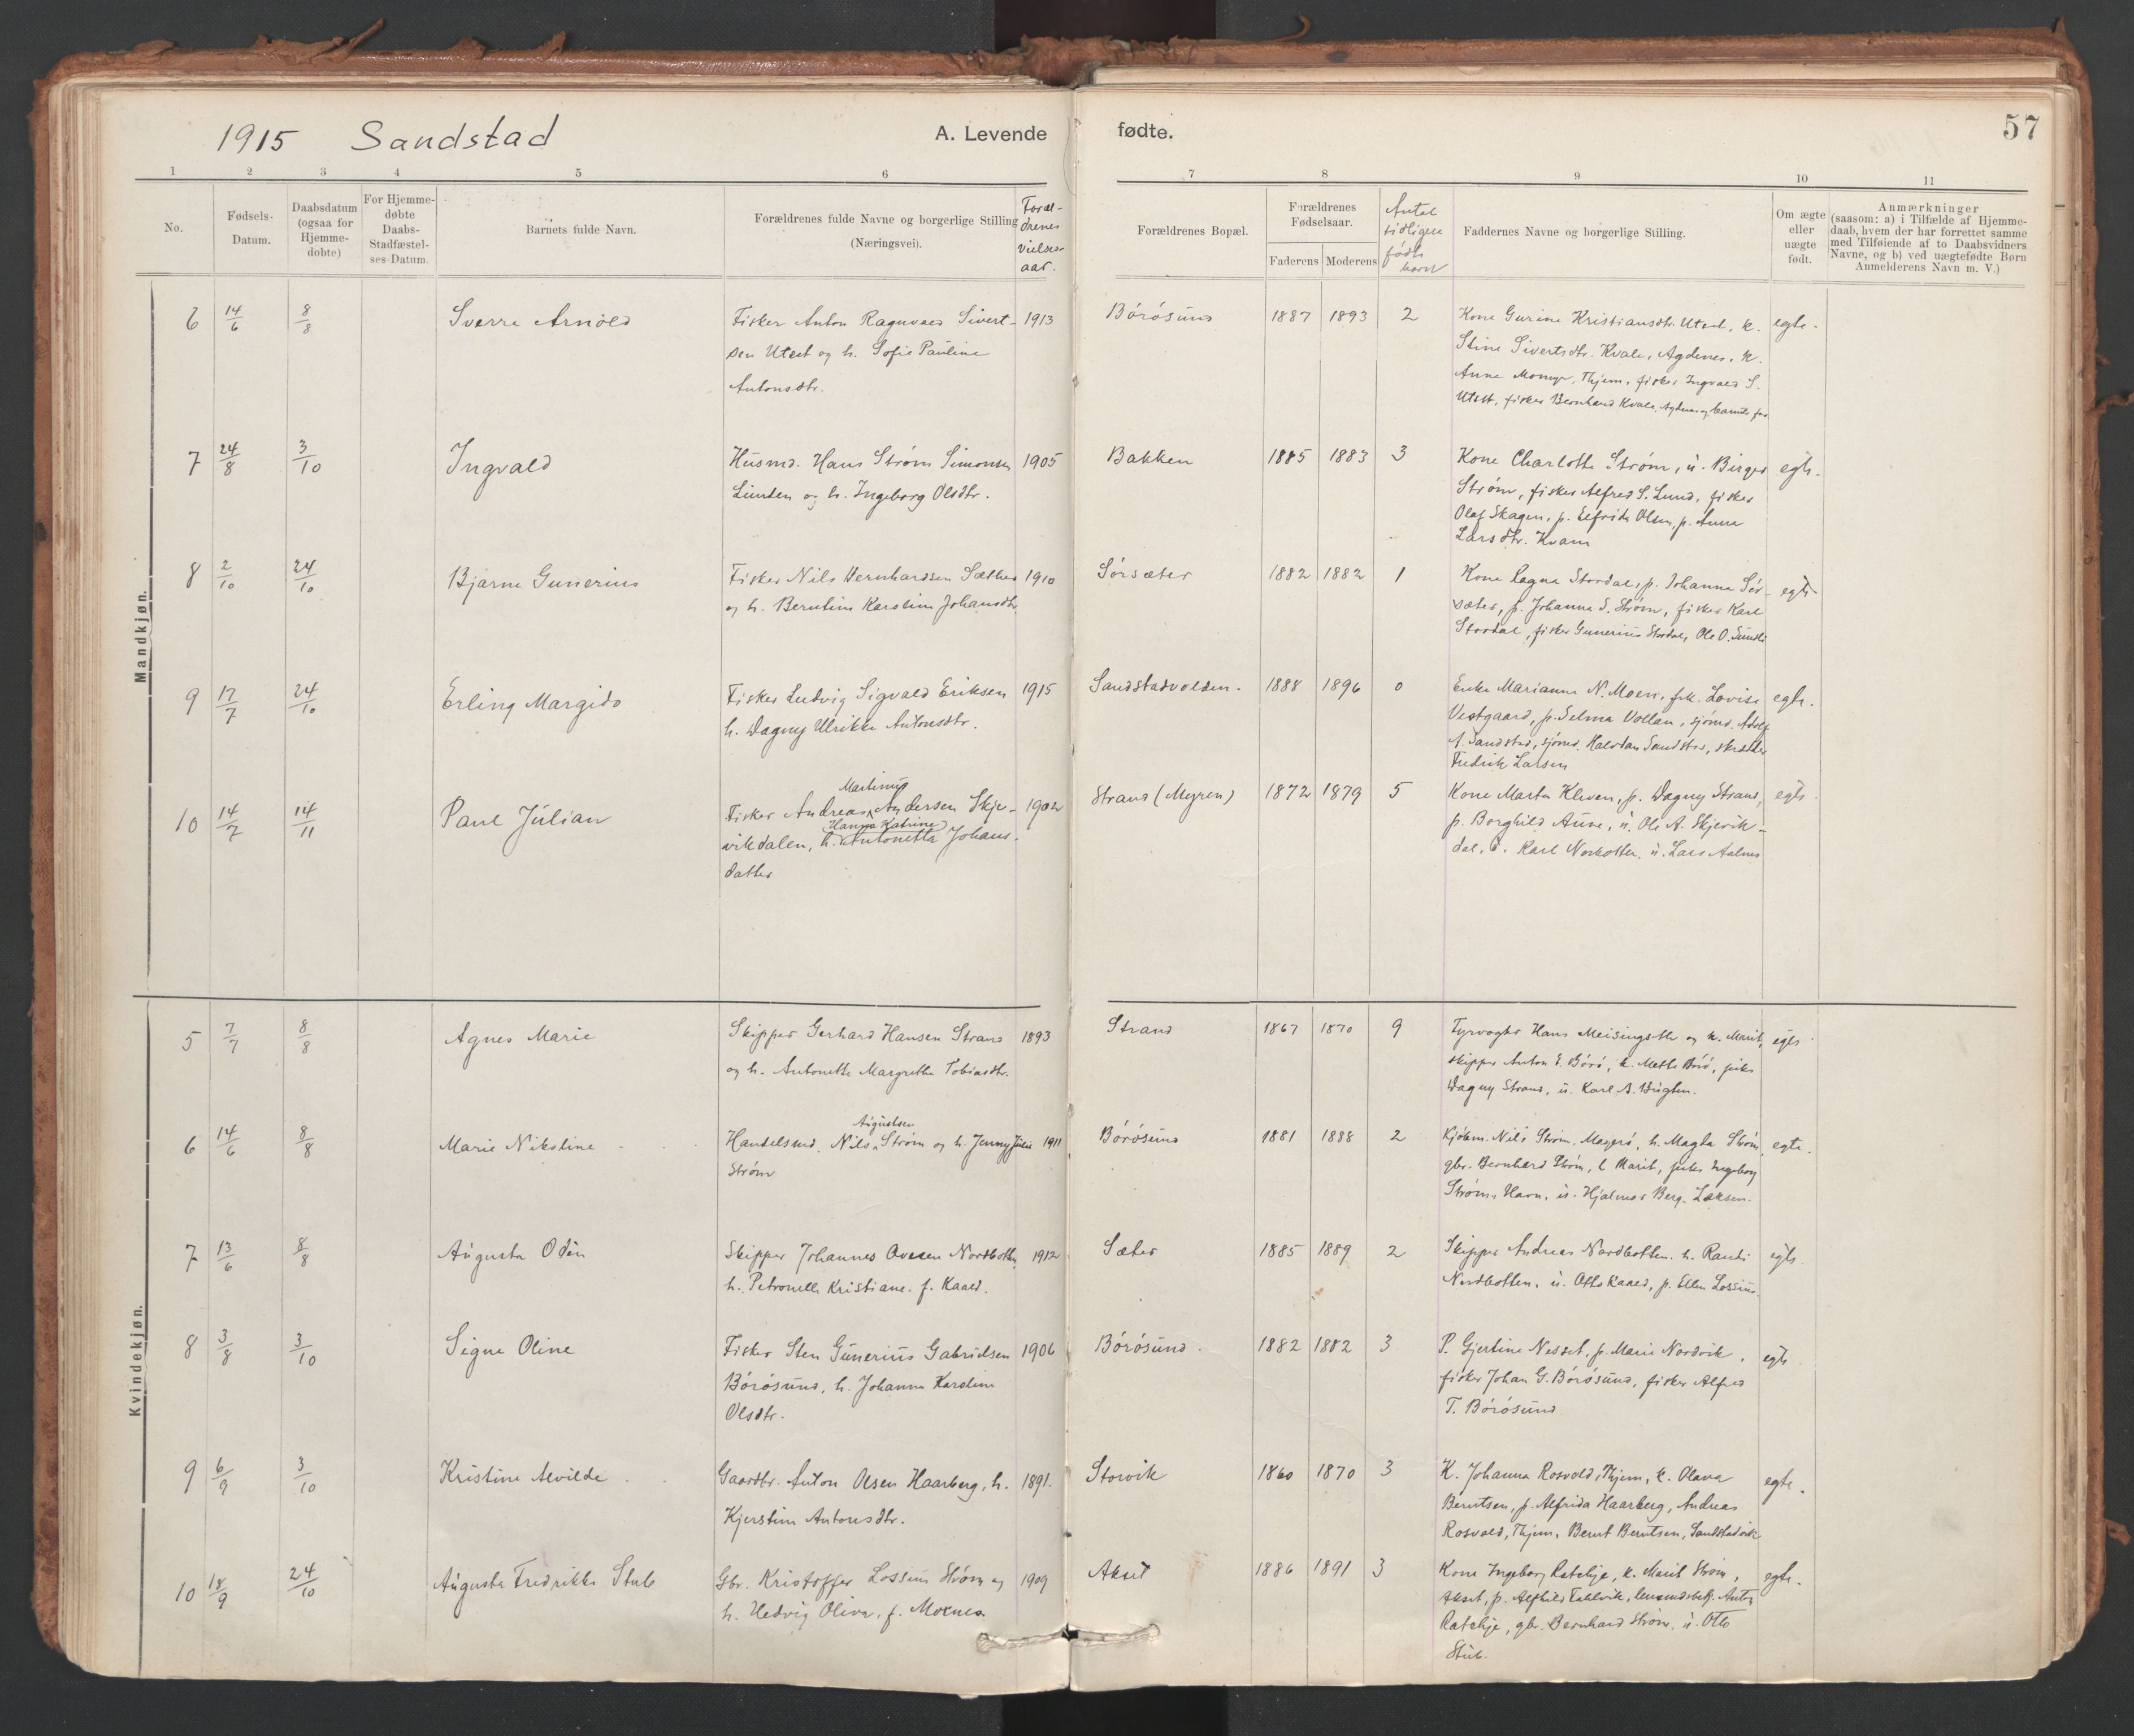 1915 Sandstad
A. Levende
fødte.
57
1 2 3 4 5 6
7 8 9 10 11
No.
Fødsels-
Datum.
Daabsdatum
(ogsaa for
Hjemme-
døbte)
For Hjemme-
døbte
Daabs-
Stadfæstel-
ses-Datum.
Barnets fulde Navn.
Forældrenes fulde Navne og borgerlige Stilling
(Næringsvei).
Foræl-
drenes
vielses-
aar.
Forældrenes Bopæl.
Forældrenes
Fødselsaar.
Faderens
Moderens
Antal
tidligere
fødte
barn
Faddernes Navne og borgerlige Stilling.
Om ægte
eller
uægte
født.
Anmærkninger
(saasom: a) i Tilfælde af Hjemme-
daab, hvem der har forrettet samme
med Tilføiende af to Daabsvidners
Navne, og b) ved uægtefødte Børn
Anmelderens Navn m. V.)
Mandkjøn.
6 14/6 8/8 Sverre Arnold
Fisker Anton Ragnvald Sivert- 1913
sen Utset og h. Sofie Pauline
Antonsdtr.
Börösund 1887 1893 2
Kone Gurine Kristiansdtr. Utset, k. egte.
Stine Sivertsdtr. Kvale, Agdenes, k.
Anne Momyr, Thjem, fisker Ingvald S.
Utset, fisker Bernhard Kvale, Agdenes og barnets far
7 24/8 3/10 Ingvald
Husmd. Hans Strøm Simonsen 1905
Lunden og h. Ingeborg Olsdtr.
Bakken 1885 1883 3
Kone Charlotte Strøm, u. Birger egte.
Strøm, fisker Alfred S. Lund, fisker
Olaf Skagen, p. Elfrida Olsen, p. Anna
Larsdtr. Kvam
8 2/10 24/10 Bjarne Gunerius
Fisker Nils Bernhardsen Sæther 1910
og h. Berntine Karoline Johansdtr.
Sörsæter 1882 1882 1
Kone Ragna Stordal, p. Johanna Sör- egte
sæter, p. Johanna S. Strøm, fisker Karl
Stordal, fisker Gunerius Stordal, Ole O. Sundli
9 17/7 24/10 Erling Margido
Fisker Ludvig Sigvald Eriksen 1915
h. Dagny Ulrikke Antonsdtr.
Sandstadvolden. 1888 1896 0
Enke Marianne N. Moen, frk. Lovise egte.
Vestgaard, p. Selma Vollan, sjömd. Adolf
A. Sandstad, sjömd. Halvdan Sandstad, skrædder
Fredrik Larsen
10 14/7 14/11 Paul Julian
Martinus
Fisker Andreas Andersen Skje- 1902
Hanna Katrine
vikdalen, h. Antonetta Johans-
datter
Strand (Myren) 1872 1879 5
Kone Marta Kleven, p. Dagny Strand, egte.
p. Borghild Aune, u. Ole A. Skjevik-
dal, u. Karl Norbotten, u. Lars Aalmo
Kvindekjøn.
5 7/7 8/8 Agnes Marie
Skipper Gerhard Hansen Strand 1893
og h. Antonette Margrethe Tobiasdtr.
Strand 1867 1870 9
Fyrvogter Hans Meisingseth og k. Marit, egte
skipper Anton E. Börö, k. Mette Börö, pike
Dagny Strand, u. Karl A. Bugten.
6 14/6 8/8 Marie Nikoline
Augustsen
Handelsmd. Nils Strøm og h. Jenny Julie 1911
Strøm
Börösund 1881 1888 2
Kjöbm. Nils Strøm, Mageró, h. Magda Strøm, egte.
gbr. Bernhard Strøm, h. Marit, pike Ingeborg
Strøm, Havn, u. Hjalmar Berg, Laksen.
7 13/6 8/8 Augusta Odin
Skipper Johannes Ovesen Nordbotten 1912
h. Petronelle Kristiane, f. Kaald.
Sæter 1885 1889 2
Skipper Andreas Nordbotten, h. Randi egte.
Nordbotten, u. Otto Kaald, p. Ellen Lossius.
8 3/8 3/10 Signe Oline
Fisker Sten Gunerius Gabrielsen 1906
Börösund, h. Johanna Karoline
Olsdtr.
Börösund. 1882 1882 3
P. Gjertine Nesset, p. Marie Nordvik, egte
fisker Johan G. Börösund, fisker Alfred
T. Börösund
9 6/9 3/10 Kristine Alvilde
Gaardbr. Anton Olsen Haarberg, h. 1891.
Kjerstine Antonsdtr.
Storvik 1860 1870 3
K. Johanna Rosvold, Thjem, k. Olava egte.
Berntsen, p. Alfrida Haarberg, Andreas
Rosvold, Thjem, Bernt Berntsen, Sandstadvik
10 18/9 24/10 Augusta Fredrikke Stub
Gbr. Kristoffer Lossius Strøm og 1909
h. Hedvig Oliva, f. Moenes.
Akset 1886 1891 3
Kone Ingeborg Ratchje, k. Marit Strøm, egte.
Akset, p. Alfhild Fahlvik, lensmandsbetj. Anton
Ratchje, gbr. Bernhard Strøm, u. Otto
Stub.